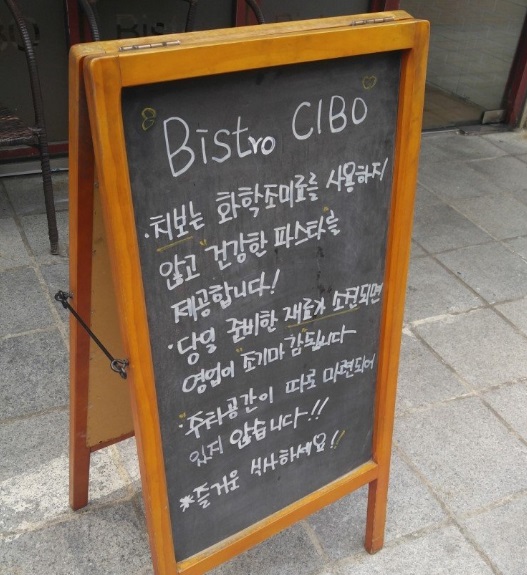 Bistro CIBO
·치보는 화학조미료를 사용하지
않고 "건강한 파스타"를
제공합니다!
·당일 준비한 재료가 소진되면
영업이 "조기마감"됩니다
·"주차공간이 따로 마련되어
있지 않습니다!!
*즐거운 식사하세요!!